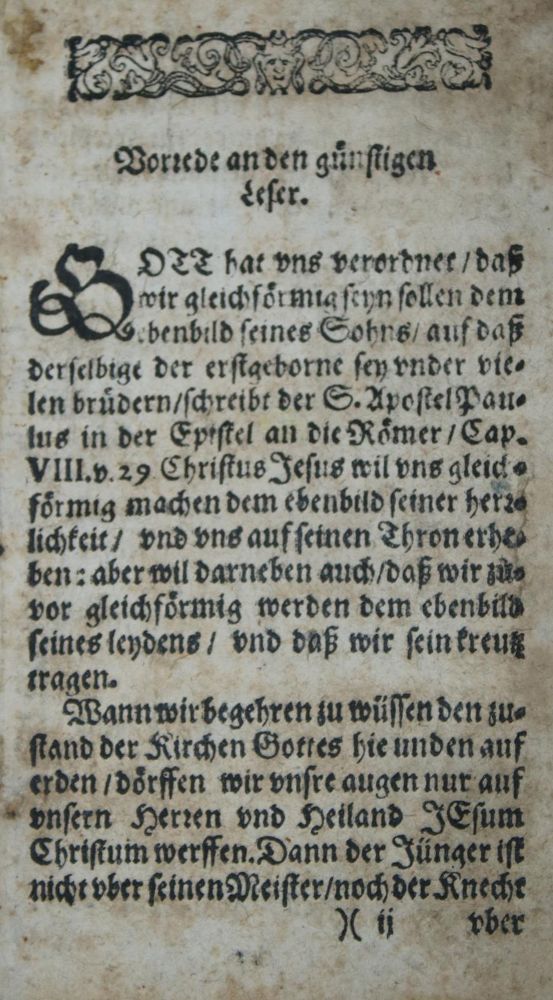 Vorrede an den günstigen
Leser.
GOTT hat vns verordnet / daß
wir gleichförmig seyn sollen dem
ebenbild seines Sohns / auf daß
derselbige der erstgeborne sey vnder vie-
len brüdern / schreibt der S. Apostel Pau-
lus in der Epistel an die Römer / Cap.
VIII. v. 29 Christus Jesus wil vns gleich-
förmig machen dem ebenbild seiner herr-
lichkeit / vnd vns auf seinen Thron erhe-
ben : aber wil darneben auch / daß wir zu-
vor gleichförmig werden dem ebenbild
seines leydens / vnd daß wir sein kreutz
tragen.
Wann wir begehren zu wüssen den zu-
stand der Kirchen Gottes hie unden auf
erden / dörffen wir vnsre augen nur auf
vnsern Herren vnd Heiland JEsum
Christum werffen. Dann der Jünger ist
nicht vber seinen Meister / noch der Knecht
)( ij vber